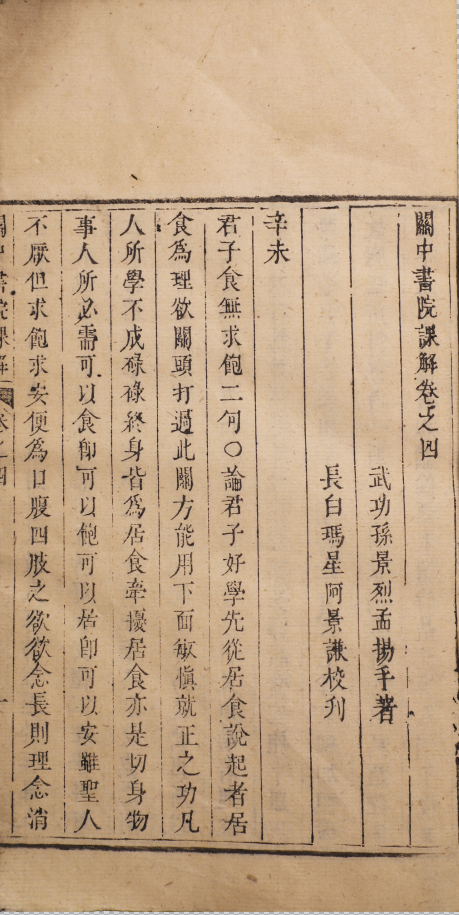 關中書院課解卷之四
武功孫景烈孟揚手著
長白瑪星阿景謙校刋
辛未
君子食無求飽二句〇論君子好學先從居食說起者居
食爲理欲關頭打過此關方能用下面敏愼就正之功凡
人所學不成碌碌終身皆爲居食牽擾居食亦是切身物
事人所必需可以食卽可以飽可以居卽可以安雖聖人
不厭但求飽求安便爲口腹四肢之欲欲念長則理念消
關中書院課解 卷之四 一